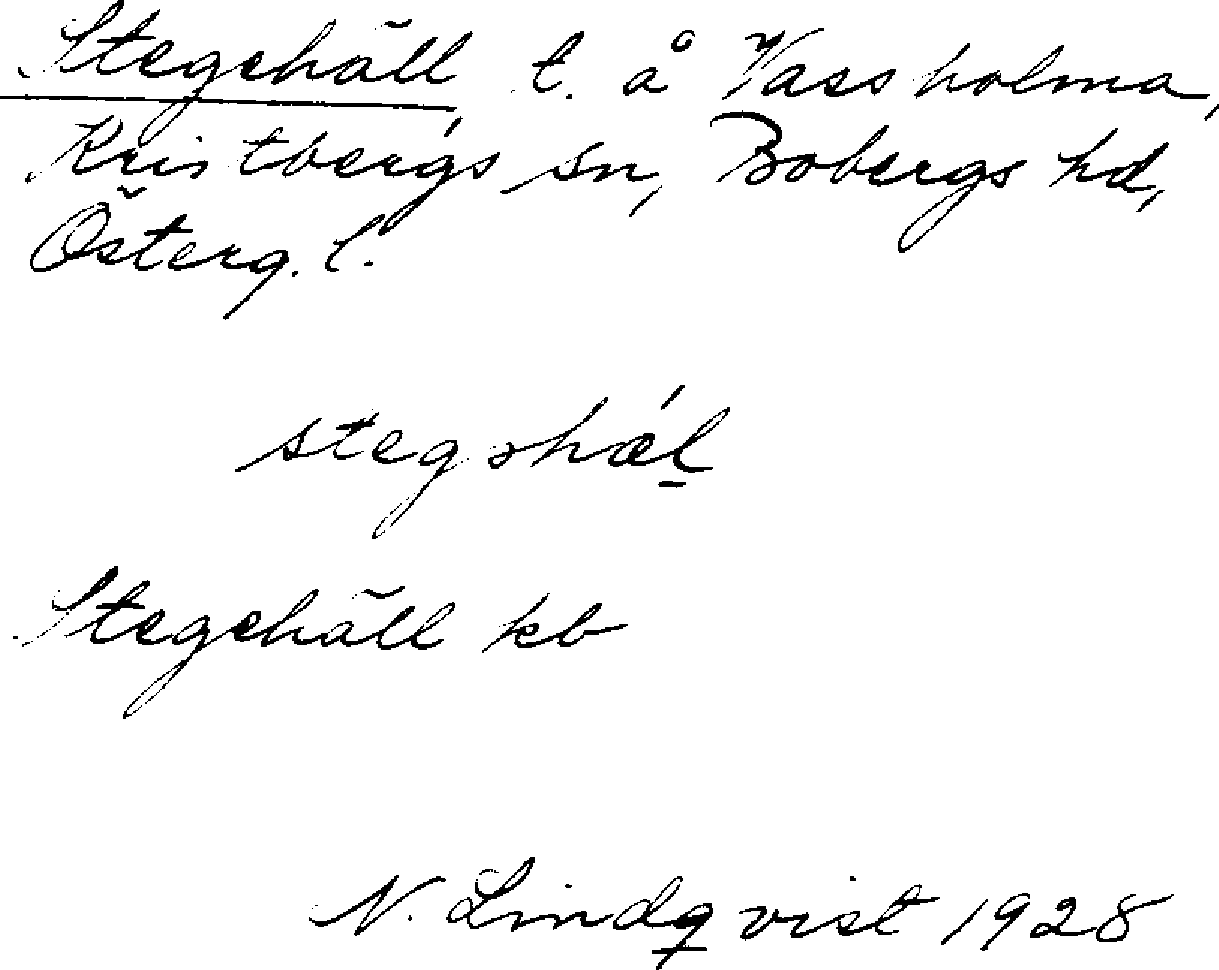 Stegehäll, t. å Vassholma,
Kristbergs sn, Bobergs hd,
Österg. l.
stegəhǽl
Stegehäll kb
N. Lindqvist 1928